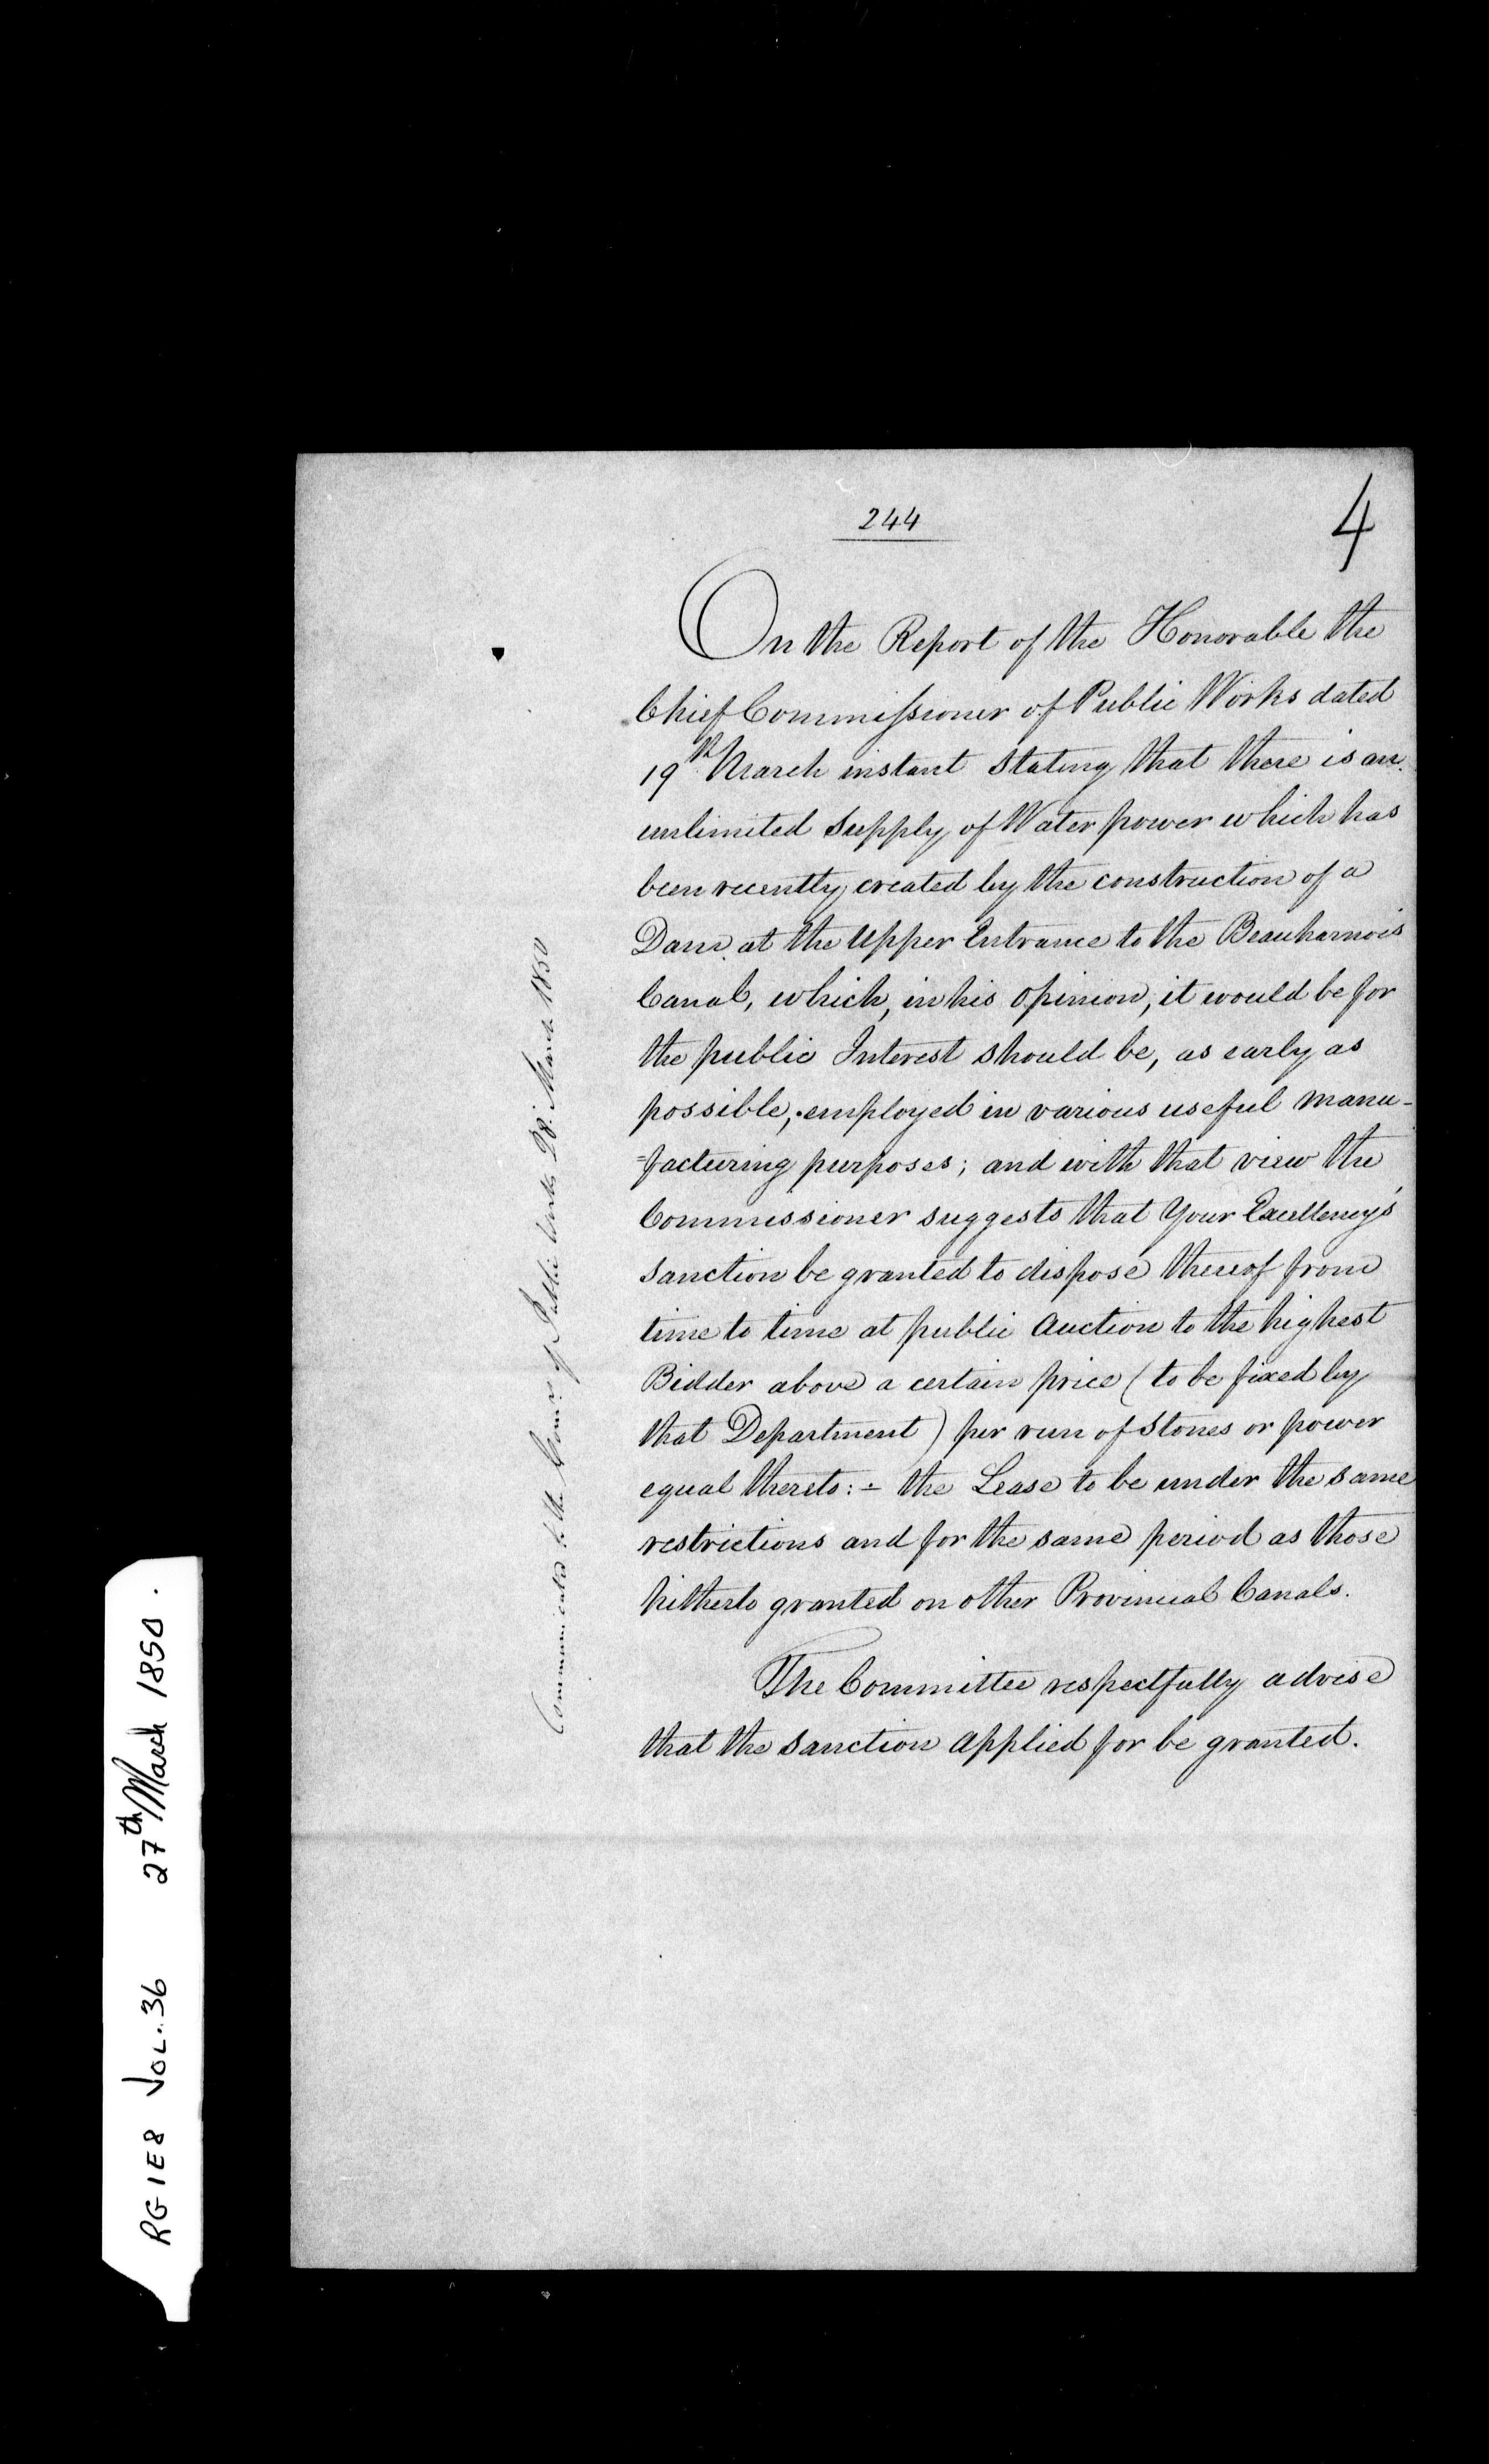 244
4
On the Report of the Honorable the
Chief Commissioner of Public Works dated
19th March instant stating that there is an
unlimited supply of Water power which has
been recently created by the construction of a
Dam at the Upper Entrance to the Beauharnois
Canal, which, in his opinion, it would be for
the public Interest should be, as early as
possible, employed in various useful manu-
=facturing purposes; and with that view the
Commissioner suggests that Your Excellency's
sanction be granted to dispose thereof from
time to time at public Auction to the highest
Bidder above a certain price (to be fixed by
that Department) per run of Stones or power
equal thereto:- the Lease to be under the same
restrictions and for the same period as those
hitherto granted on other Provincial Canals.
The Committee respectfully advise
that the sanction applied for be granted.
Communicated to the Comrs of Public Works 28 March 1850
RG 1 E 8 VOL. 36 27th March 1850.